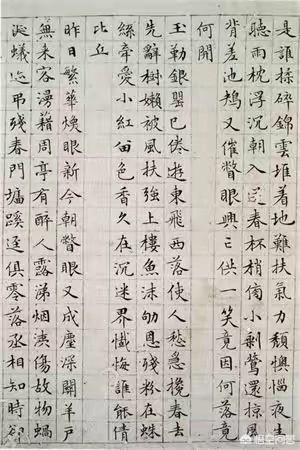 是誰揉碎錦雲堆着地難扶氣力頹懊惱夜生
聽雨枕浮沉朝入送春杯梢傍小剩鶯還掠風
背差池鳩又催瞥眼興亡供一笑竟因何落竟
何開
玉勒銀罌已倦遊東飛西落使人愁急攙春去
先辭樹懶被風扶強上樓魚沫劬恩殘粉在蛛
絲牽愛小紅留色香久在沉迷界懺悔誰能倩
比丘
昨日繁華煥眼新今朝瞥眼又成塵深關羊戶
無來客漫藉周亭有醉人露涕烟洟傷故物蝸
涎蟻迹弔殘春門墻蹊徑俱零落丞相知時卻
悟空问答